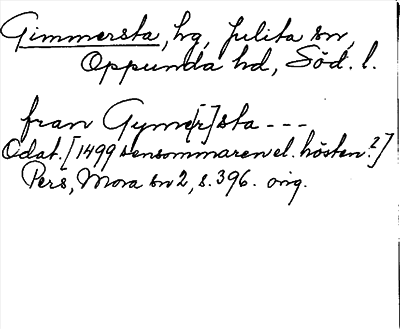 Gimmersta, hg, Julita sn,
Oppunda hd, Söd. l.
fran Gyme[r]sta ---
Odat. [1499 sensommaren el. hösten?]
Pers, Mora sn 2, s. 396. orig.